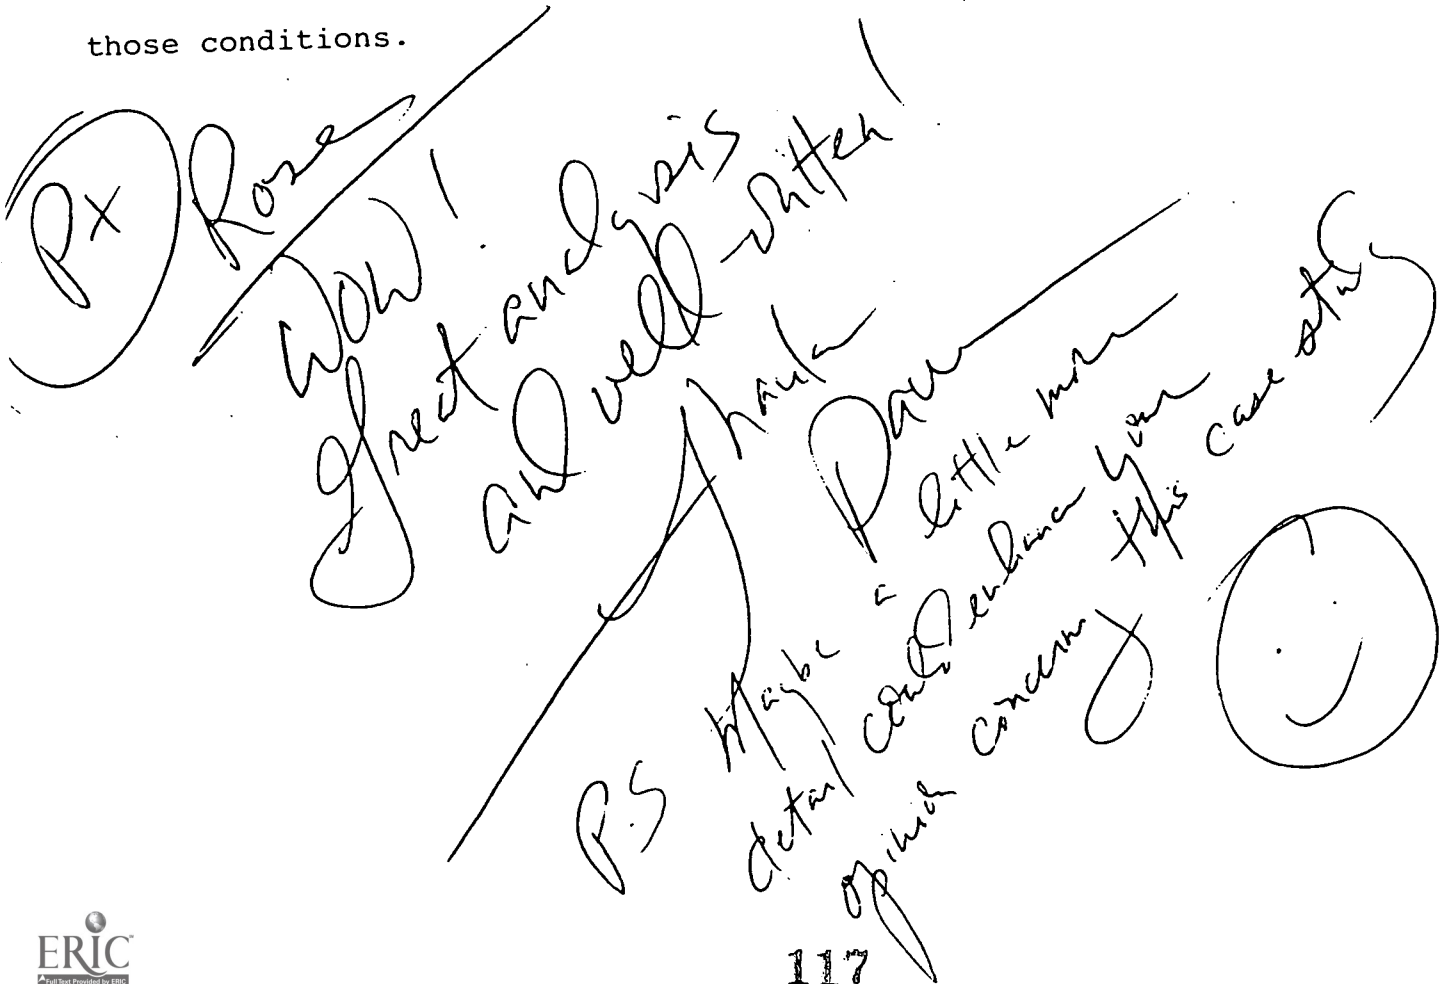 those conditions.
PX
Rose
Wow!
Great analysis
and well-written!
Thanks
Dave
P.S Maybe a little more
detail could enhance your
opinion concerning this case study
ERIC
Full Text Provided by ERIC
117